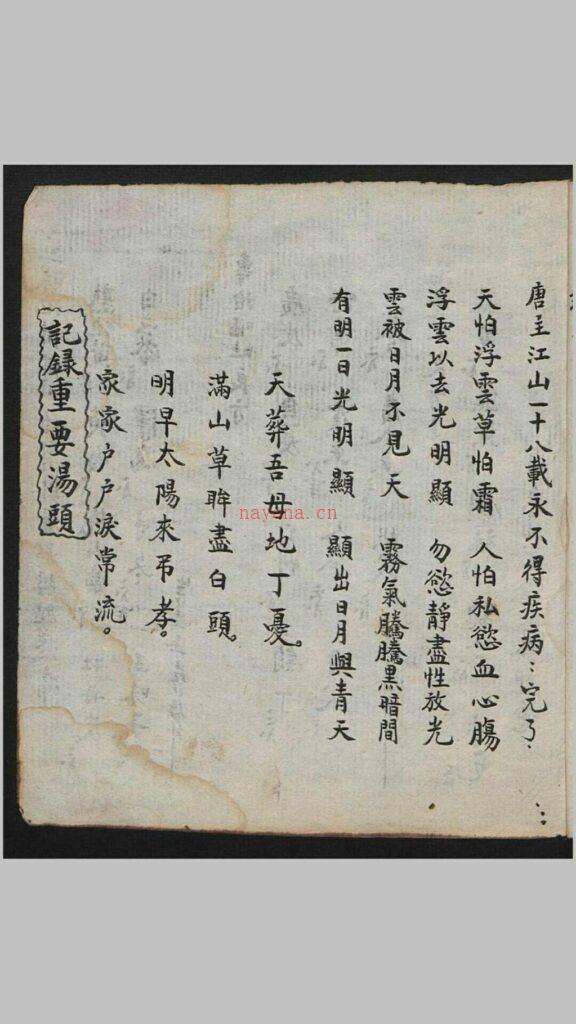 唐主江山一十八載永不得疾病:完了:
天怕浮雲草怕霜 人怕私慾血心腸
浮雲以去光明顯 勿慾靜盡性放光
雲被日月不見天 霧氣騰騰黑暗間
有明一日光明顯 顯出日月與青天
天葬吾母地丁憂。
滿山草眸盡白頭。
明早太陽來吊孝。
家家户户淚常流。
記錄重要湯頭
nayona.cn